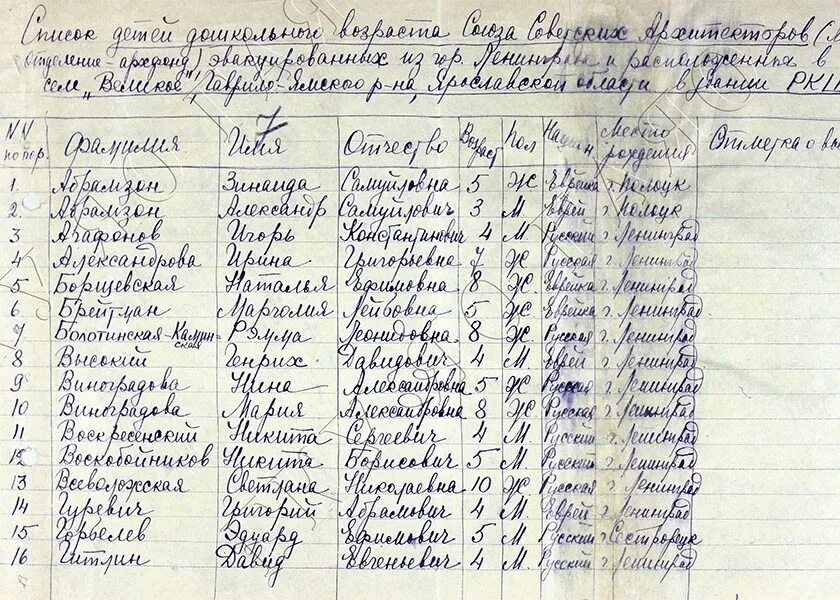 Список детей дошкольного возраста Союза Советских Архитекторов
Отделение - архфонд) эвакуированных из гор. Ленинграда и расположенных в
селе „Великое" Гаврило-Ямского р-на, Ярославской области, в здании
7
NN по пор. Фамилия Имя Отчество Возраст Пол Место рождения Отметка о
1. Абрамзон Зинаида Самуйловна 5 Ж Еврейка г. Полоцк
2. Абрамзон Александр Самуйлович 3 М. Еврей г. Полоцк
3 Агафонов Игорь Константинович 4 М Русский г. Ленинград
4 Александрова Ирина Григорьевна 7 Ж Русская г. Ленинград
5 Борщевская Наталья Ефимовна 8 Ж. Еврейка г. Ленинград
6 Брейтман Марголия Лейбовна 5 Ж Еврейка г. Ленинград
7 Болотинская-Каминская Рэмма Леонидовна 8 Ж Русская г. Ленинград
8 Высокий Генрих Давидович 4 М. Еврей г. Ленинград
9 Виноградова Нина Александровна 5 Ж Русская г. Ленинград
10 Виноградова Мария Александровна 8 Ж Русская г. Ленинград
11 Воскресенский Никита Сергеевич 4 М. Русский г. Ленинград
12 Воскобойников Никита Борисович 5 М. Русский г. Ленинград
13 Всеволожская Светлана Николаевна 10 Ж Русская г. Ленинград
14 Гуревич Григорий Абрамович 4 М. Еврей г. Ленинград
15 Эдуард Ефимович 5 М Русский г. Сестрорецк
16 Гитлин Давид Евгеньевич 4 М. Русский г. Ленинград